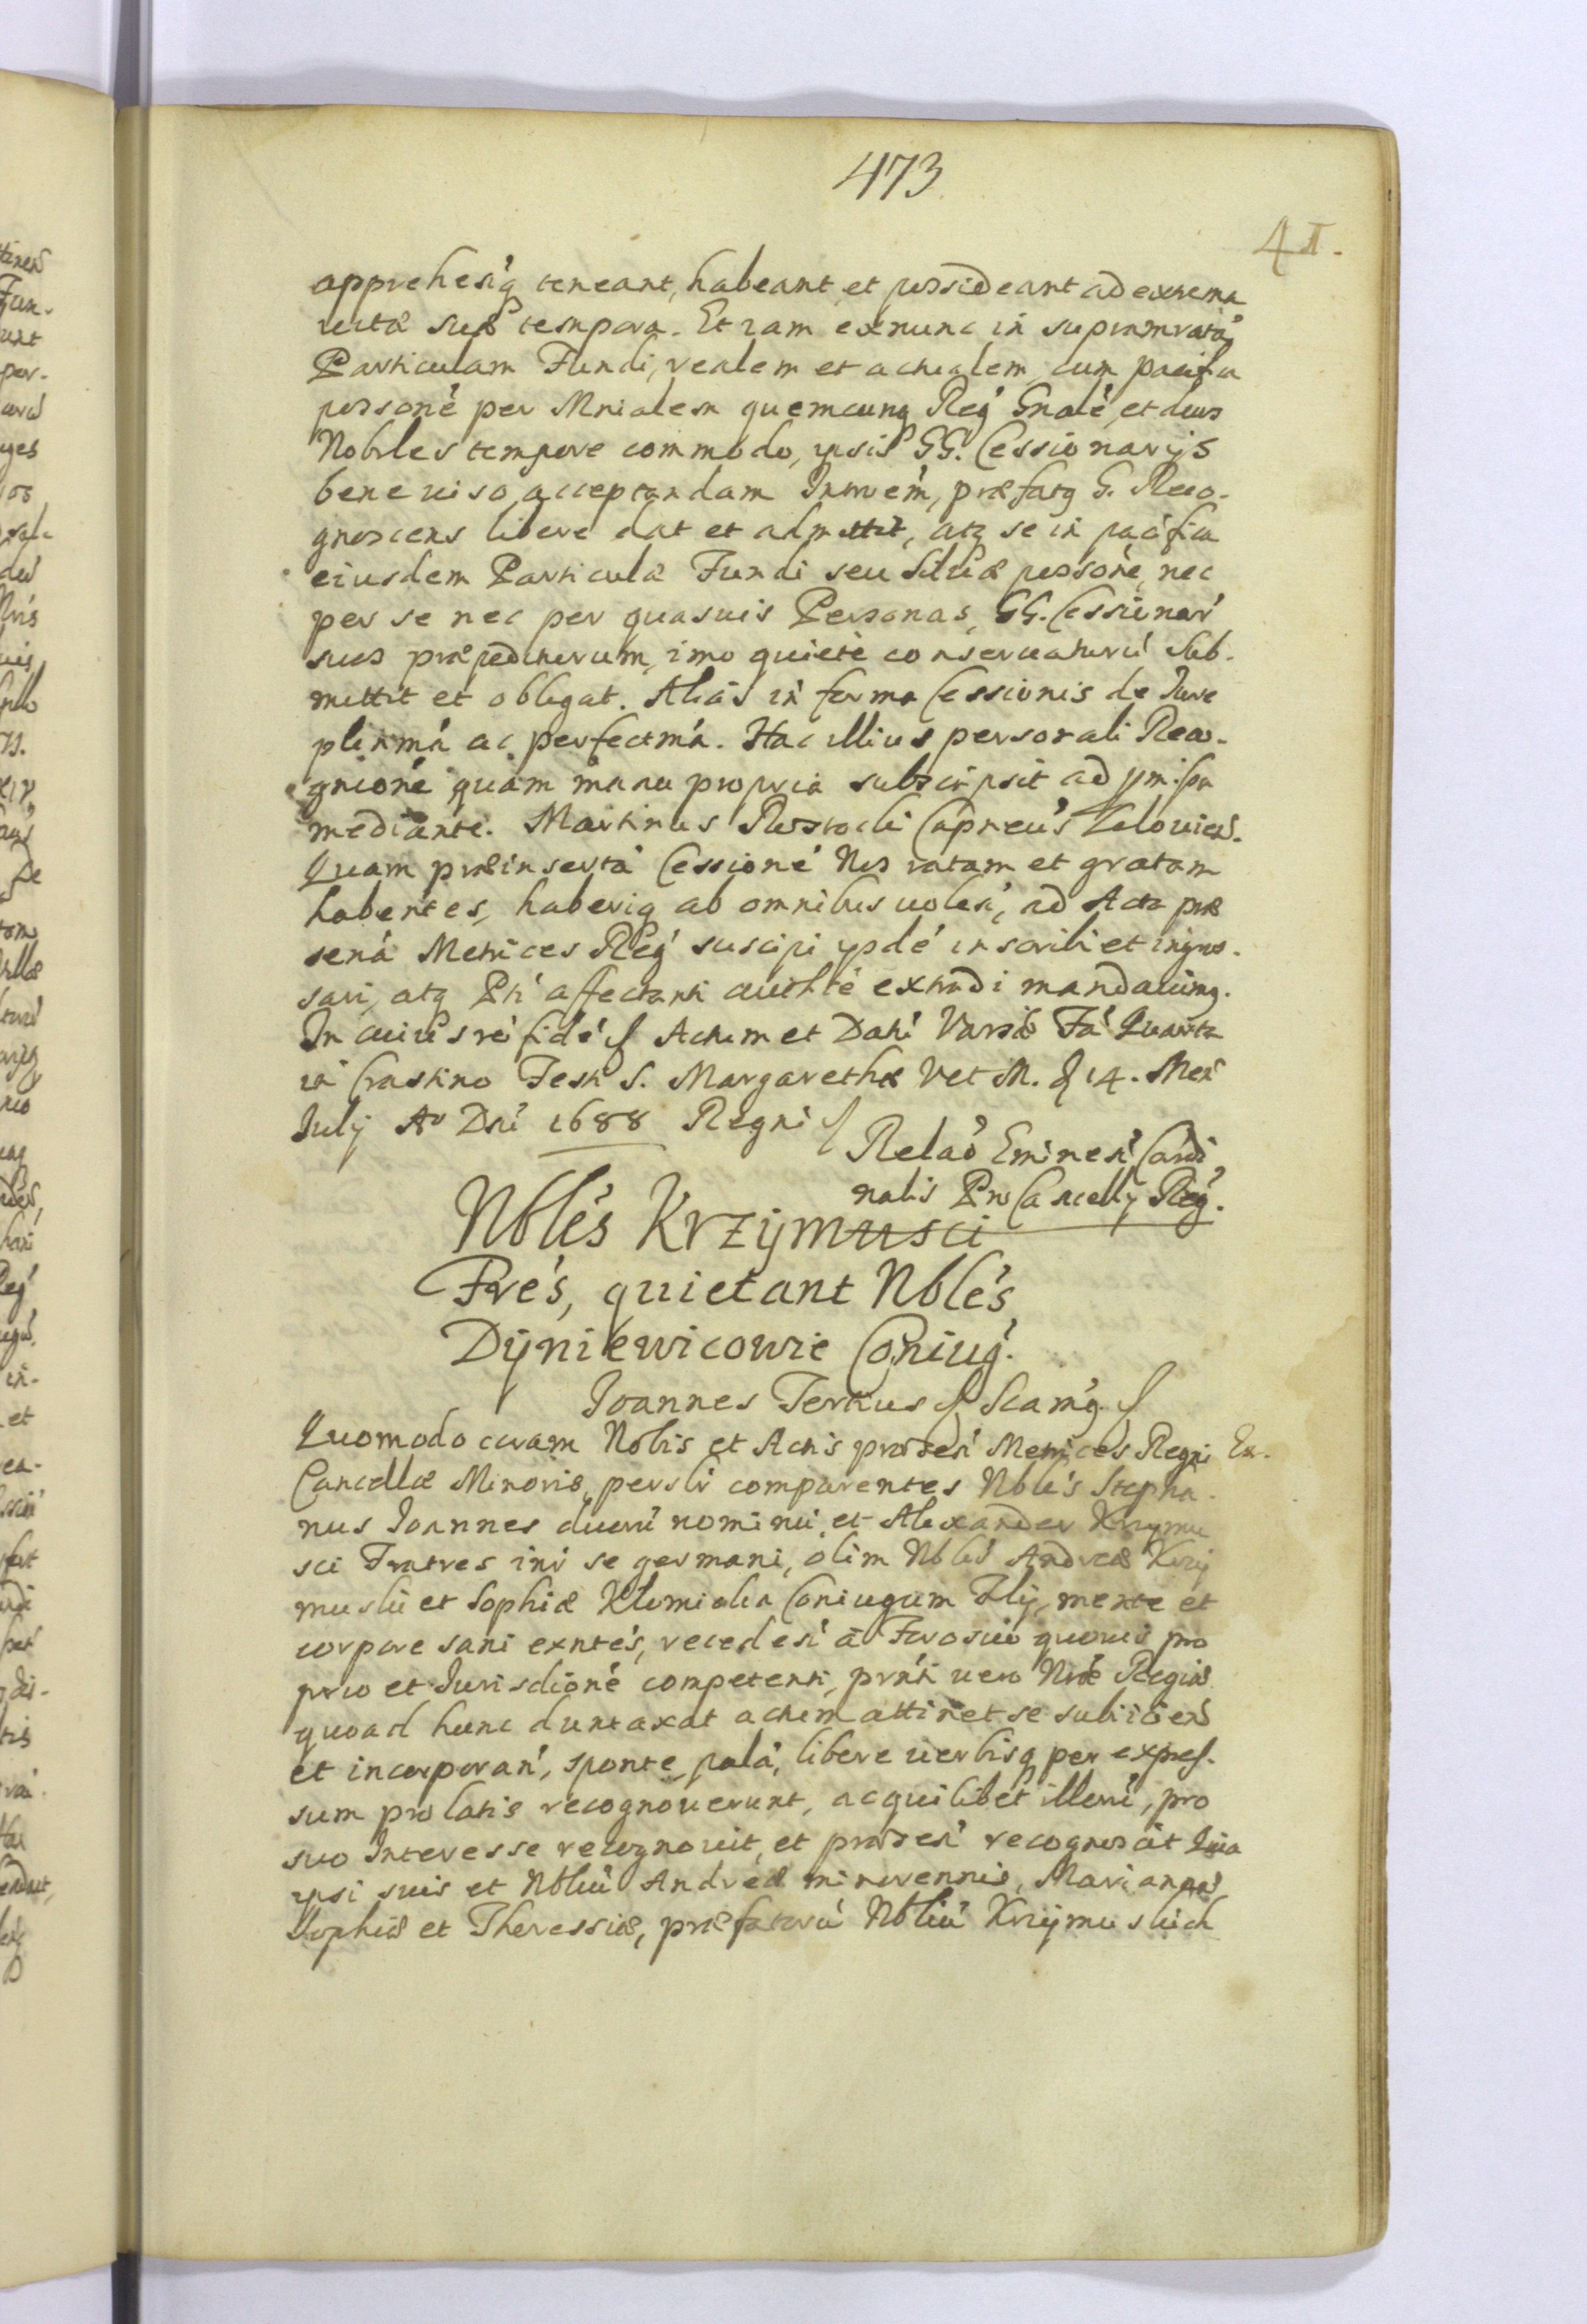 473
41.
apprehesiq teneant, habeant et possideant ad extrema
vitæ suæ tempora. Et iam exnunc in supranratã
Particulam Fundi, realem et actualem, cum pacifica
possoné per Mnialem quemcunq Reg Gnalé, et duos
Nobiles tempore commodo, ipsis GG. Cessionarijs
bene uiso, acceptandam Intro͏̈em, præfatq G. Reco-
gnoscens libere dat et admittit, atq se in pacifica
eiusdem Particulæ Fundi seu Siluæ possone, nec
per se nec per quasuis Personas, GG. Cessionar
suos præpediturum, imo quieté conseruaturú sub-
mittit et obligat. Aliás in forma Cessionis de Iure
plenmá ac perfectmá. Hac illius personali Reco-
gnicioné quam manu propria subscripsit ad
mediante. Martinus Capneus
Quam præinsertã Cessioné Nos ratam et gratam
habentes, haberiq ab omnibus uolen, ad Acta præ
senã Metrices Reg suscipi ipdé inscribi et ingros-
sari, atq Pti affectanti authté extradi mandauimq.
In cuius rei fidé Actum et Datú Varsæ Fá Quarta
in Crastino Festi S. Margarethæ V et M. 14. Men
Iulij Aº Dni 1688 Regni
Relaõ Eminen Cardi
nalis ProCancellij Reg.
Nblés Krzijmusci
Frés, quietant Nblés
Dijniewicowie Coniug.
Ioannes Tertius Scamq.
Quomodo coram Nobis et Actis præsen Metrices Regni Ex.
Cancellæ Minoris, persłr comparentes Nblés Stepha-
nus Ioannes duorú nominú, et Alexander Krzymu
sci Fratres inr se germani, olim Nbliú Andreæ Krzij
muski et Sophiæ Coniugum Filij, mente et
corpore sani exntés, receden á Foro suo quouis pro
prio et Iurisdioné competenti, pránti uero Nræ Regiæ
quoad hunc duntaxat actum attinet se subiicien
et incorporan, sponte, palá, libere uerbisq per expres-
sum prolatis recognouerunt, ac quilibet illorú, pro
suo Interesse recognouit, et præsen recognoscit Quia
ipsi suis et Nbliú Andreæ minorennis, Mariannæ
Sophiæ et Theressiæ, præfatorú Nbliú Krzijmuskich